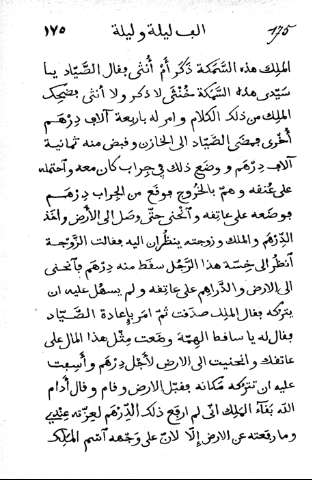 ١٧٥ الف ليلة وليلة 175
الملك هذه السّمكة ذَكَر أَمْ أُنْثى بفال الصَّيّاد يا
سيّدى هذه السَّمكة خُنْثَى لا ذكر ولا أنثى بضحك
الملك من ذلك الكلام وامر له باربعة آلاف دِرْهَم
أخرى بمضى الصّيّاد الى الخازن وفبض منه ثمانية
آلاف دِرْهم ووضع ذلك فى جراب كان معه واحتمله
على عُنفه وهمّ بالخروج بوفع من الجراب دِرْهَم
بوضعه على عاتفه وآنْحَنى حتّى وصل الى الأرض واخذ
الدِّرْهَم والملك وزوجته ينظُران اليه بفالت الزَّوجة
آنظُر الى خِسّة هذا الرّجُل سفَط منه دِرْهَم بآنحنى
الى الارض والدَّراهِم على عاتفه ولم يسهُل عليه ان
يتركه بفال الملك صدَفت ثُمّ امَر بإعادة الصّيّاد
بفال له يا سافط الهِمّة وضعتَ مِثْل هذا المال على
عاتفك وانحنيت الى الارض لأجْل دِرْهم وأسِبت
عليه ان تتركه مكانه بفبّل الارض وفام وفال أدام
الله بَفَآءَ المَلِك انّى لم ارفع ذلك الدِّرْهم لعِزّته عِنْدِى
وما رفعته عن الارض إلّا لأنّ على وجهه آسم المَلِك